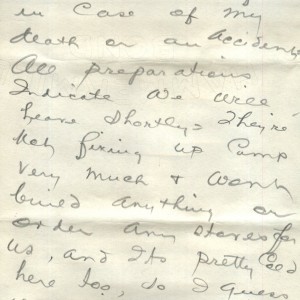 in case of my
death or an accident
All preparations
Indicate we will
leave shortly = They're
Not fixing up Camp
very much & won't
build anything or
order any stoves for
us, and Its pretty cold
here too, so I guess